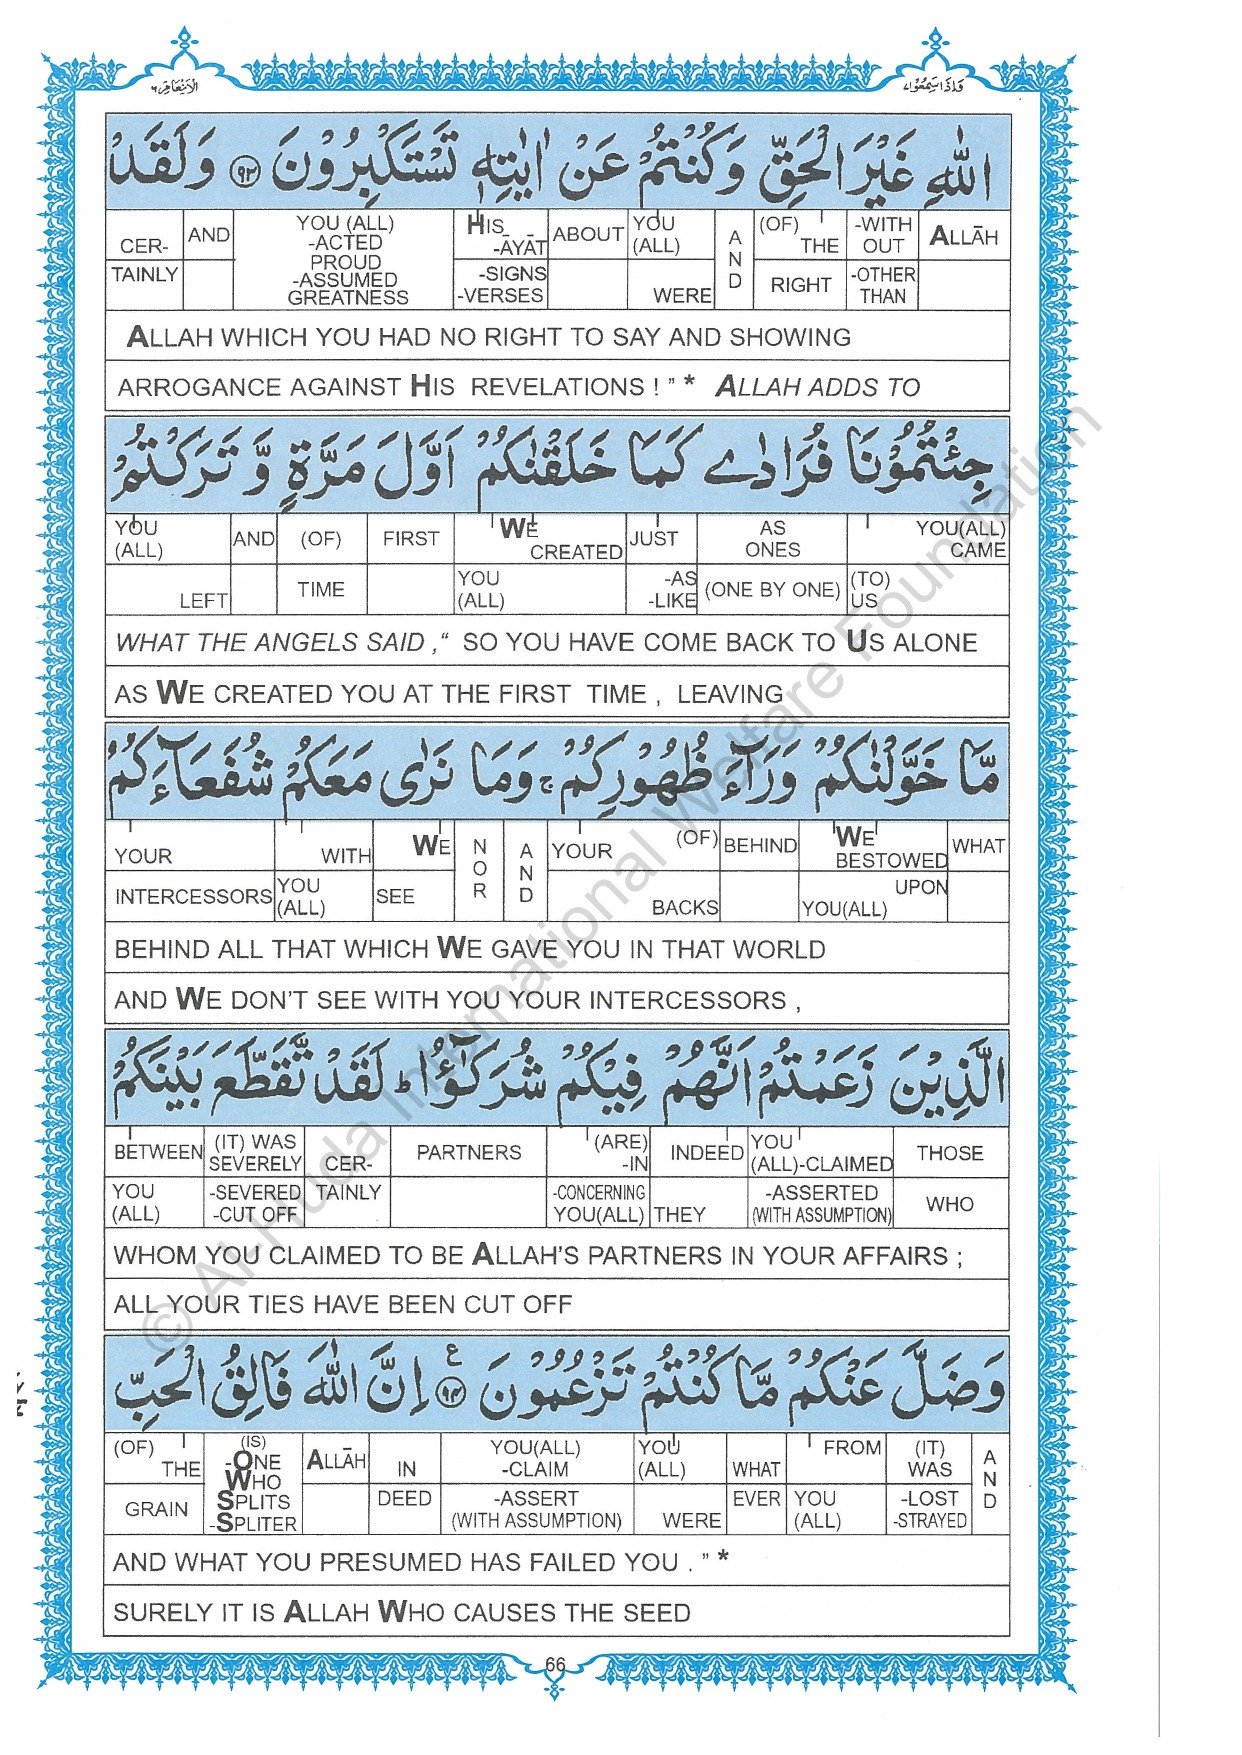 وَإِذَا سَمِعُوا ٧
الْاَنْعَام ٦
اللّٰهِ غَيْرَ الْحَقِّ وَكُنْتُمْ عَنْ اٰيٰتِهٖ تَسْتَكْبِرُوْنَ ﴿٩٣﴾ وَلَقَدْ
CER- AND YOU (ALL) -ACTED PROUD -ASSUMED GREATNESS HIS -ĀYĀT ABOUT YOU (ALL) AND (OF) THE -WITH OUT ALLĀH
TAINLY -SIGNS -VERSES WERE RIGHT -OTHER THAN
ALLAH WHICH YOU HAD NO RIGHT TO SAY AND SHOWING
ARROGANCE AGAINST HIS REVELATIONS ! ” * ALLAH ADDS TO
جِئْتُمُوْنَا فُرَادٰے كَمَا خَلَقْنٰكُمْ اَوَّلَ مَرَّةٍ وَّ تَرَكْتُمْ
YOU (ALL) AND (OF) FIRST WE CREATED JUST AS ONES YOU(ALL) CAME
LEFT TIME YOU (ALL) -AS -LIKE (ONE BY ONE) (TO) US
WHAT THE ANGELS SAID ,“ SO YOU HAVE COME BACK TO US ALONE
AS WE CREATED YOU AT THE FIRST TIME , LEAVING
مَّا خَوَّلْنٰكُمْ وَرَآءَ ظُهُوْرِكُمْ ۚ وَمَا نَرٰى مَعَكُمْ شُفَعَآءَكُمُ
YOUR WITH WE NOR AND YOUR (OF) BEHIND WE BESTOWED WHAT
INTERCESSORS YOU (ALL) SEE BACKS UPON YOU(ALL)
BEHIND ALL THAT WHICH WE GAVE YOU IN THAT WORLD
AND WE DON’T SEE WITH YOU YOUR INTERCESSORS ,
الَّذِيْنَ زَعَمْتُمْ اَنَّهُمْ فِيْكُمْ شُرَكٰٓؤُا ؕ لَقَدْ تَّقَطَّعَ بَيْنَكُمْ
BETWEEN (IT) WAS SEVERELY CER- PARTNERS (ARE) -IN INDEED YOU (ALL)-CLAIMED THOSE
YOU (ALL) -SEVERED -CUT OFF TAINLY -CONCERNING YOU(ALL) THEY -ASSERTED (WITH ASSUMPTION) WHO
WHOM YOU CLAIMED TO BE ALLAH’S PARTNERS IN YOUR AFFAIRS ;
ALL YOUR TIES HAVE BEEN CUT OFF
وَضَلَّ عَنْكُمْ مَّا كُنْتُمْ تَزْعُمُوْنَ ﴿٩٤﴾ ع اِنَّ اللّٰهَ فَالِقُ الْحَبِّ
(OF) THE (IS) -ONE WHO SPLITS -SPLITER ALLĀH IN YOU(ALL) -CLAIM YOU (ALL) WHAT FROM (IT) WAS AND
GRAIN DEED -ASSERT (WITH ASSUMPTION) WERE EVER YOU (ALL) -LOST -STRAYED
AND WHAT YOU PRESUMED HAS FAILED YOU . ” *
SURELY IT IS ALLAH WHO CAUSES THE SEED
66
© Al-Huda International Welfare Foundation